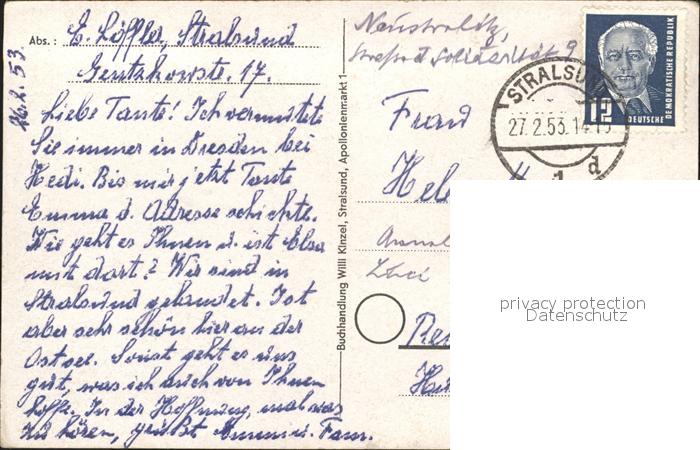 Abs.: E. Löffler, Stralsund
Gentzkowstr. 17.
26.2.53.
Liebe Tante! Ich vermutete
Sie immer in Dresden bei
Hedi. Bis mir jetzt Tante
Emma d. Adresse schickte.
Wie geht es Ihnen u. ist Elsa
mit dort? Wir sind in
Stralsund gelandet. Ist
aber sehr schön hier an der
Ostsee. Sonst geht es uns
gut, was ich auch von Ihnen
hoffe. In der Hoffnung, mal was
zu hören, grüßt u. Fam.
Buchhandlung Willi Kinzel, Stralsund, Apollonienmarkt 1
Neustrelitz,
Straße d. Solidarität 9
Frau
Hel
DEUTSCHE
DEMOKRATISCHE REPUBLIK
12
STRALSUND
27.2.53.14-15
1 d
privacy protection
Datenschutz